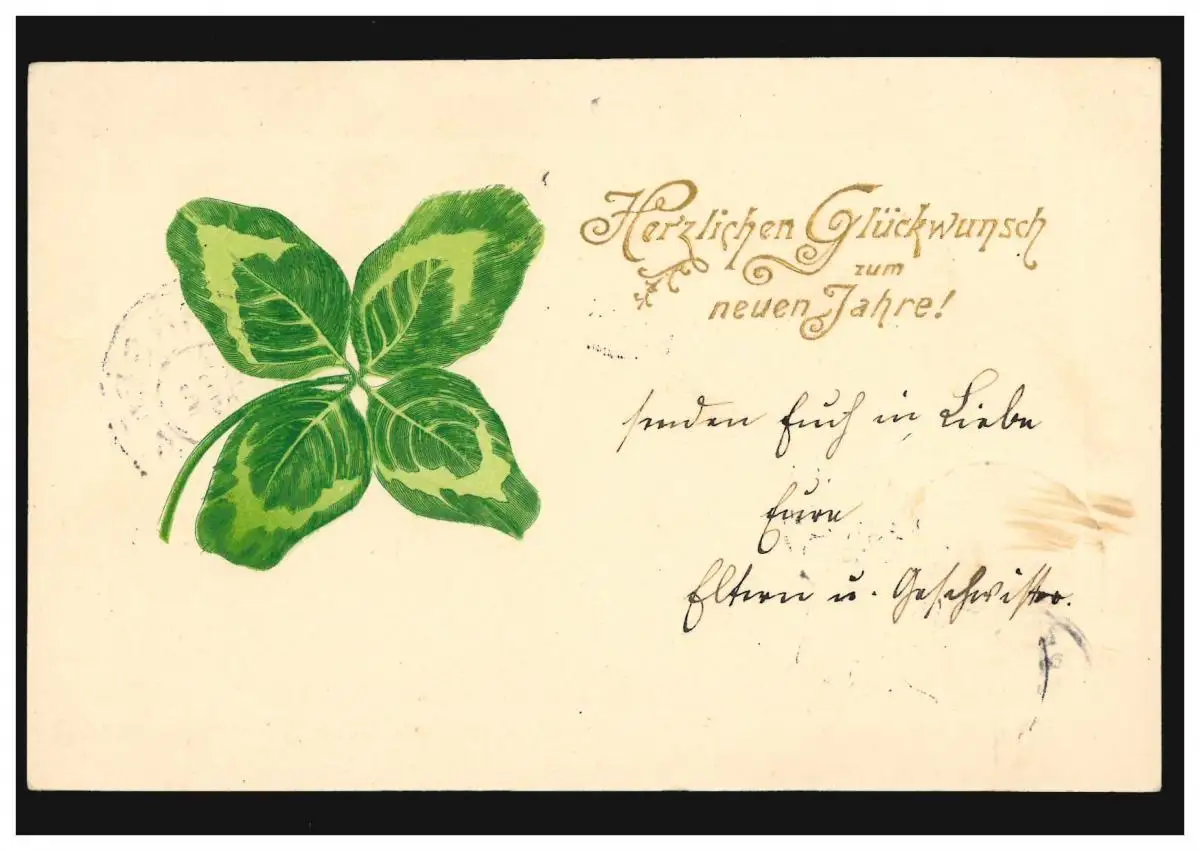 Herzlichen Glückwunsch
zum
neuen Jahre!
senden Euch in Liebe
Eure
Eltern u. Geschwister.